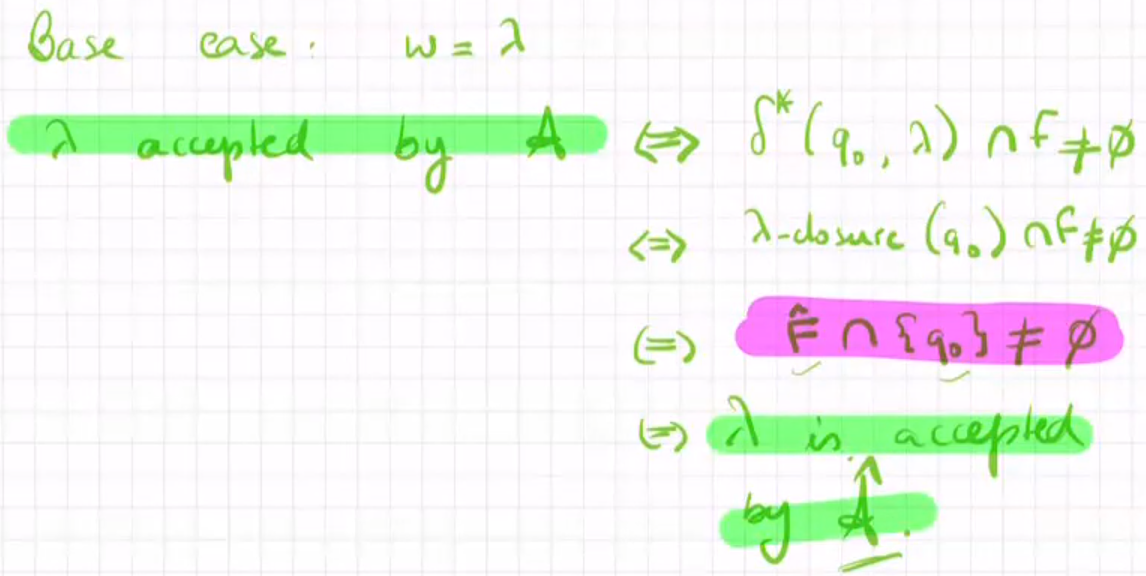 Base case: w = λ
λ accepted by A ⟺ δ*(q₀, λ) ∩ F ≠ ∅
⟺ λ-closure (q₀) ∩ F ≠ ∅
⟺ F̂ ∩ {q₀} ≠ ∅
⟺ λ is accepted
by Â.